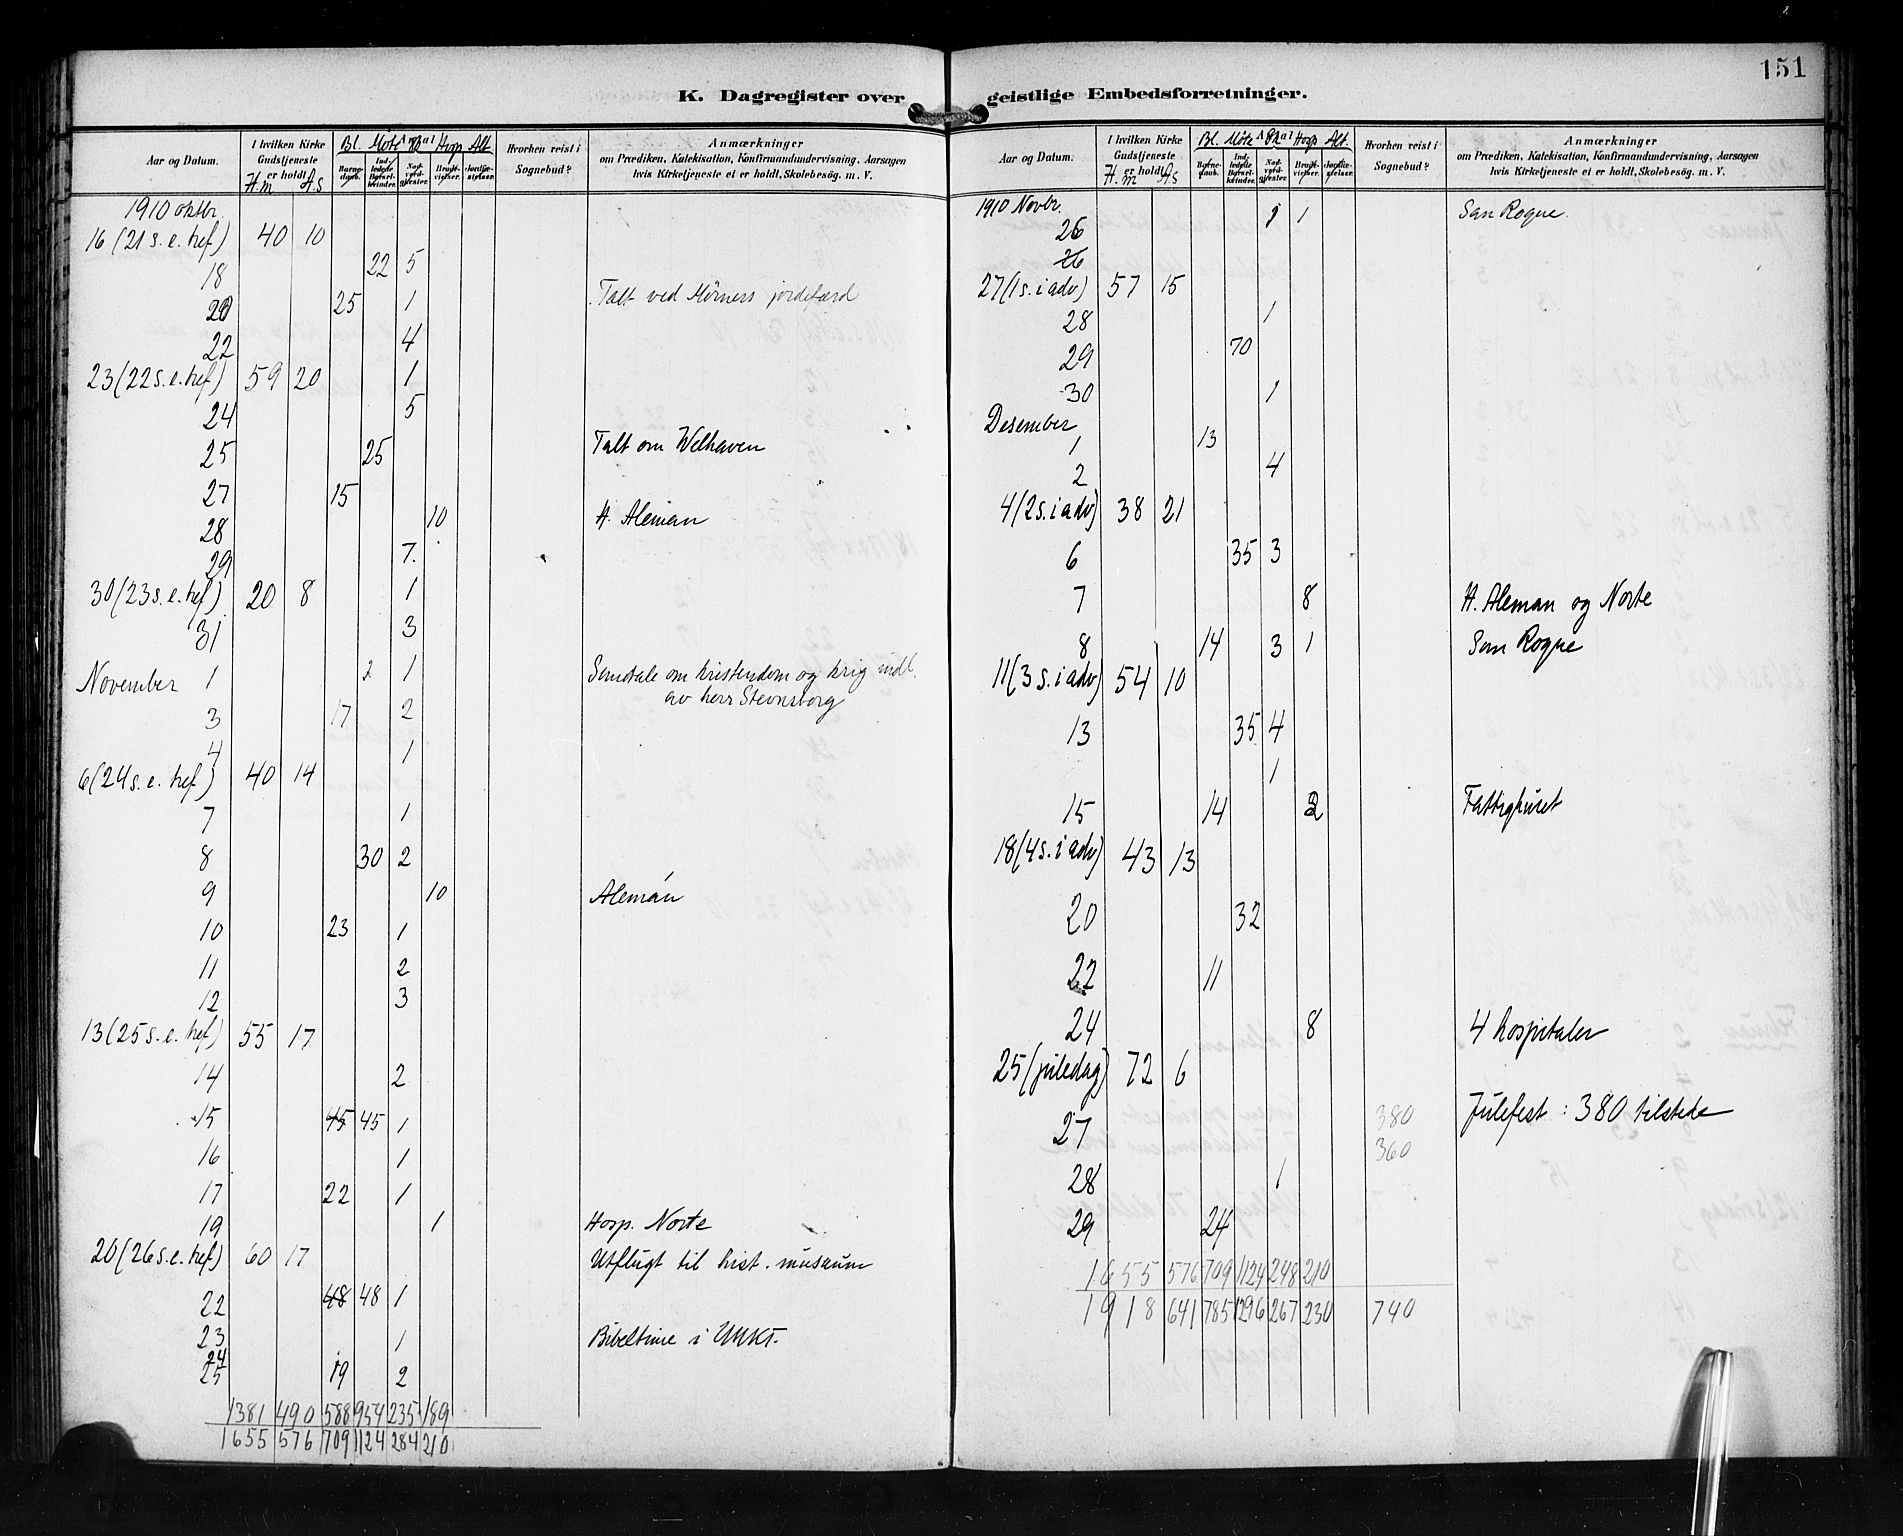 151
K. Dagregister over geistlige Embedsforretninger.
Aar og Datum.
I hvilken Kirke Gudstjeneste er holdt.
H.m As
Antal
Bl. Møte Hosp. Alt.
Barnedaab.
Indledede Barselkvinder.
Nadverdgjæster.
Brudevielser.
Jordfæstelser.
Hvorhen reist i Sognebud?
Anmærkninger
om Prædiken, Katekisation, Konfirmandundervisning, Aarsagen
hvis Kirketjeneste ei er holdt, Skolebesøg. m. V.
1910 oktbr.
16 (21 s. e. tref) 40 10
18 22 5
20 25 1 Talt ved Mörners jordefærd
22 4
23 (22 s. e. tref) 59 20 1
24 5
25 25 Talt om Welhaven
27 15
28 10 H. Aleman
29 7.
30 (23 s. e. tref) 20 8 1
31 3
November 1 2 1 Samtale om kristendom og krig indl.
av herr Stevnsborg
3 17 2
4 1
6 (24 s. e. tref) 40 14
7 1
8 30 2
9 10 Alemán
10 23 1
11 2
12 3
13 (25 s. e. tref) 55 17
14 2
15 45 45 1
16 1
17 22 1
19 1 Hosp. Norte
20 (26 s. e. tref) 60 17 Utflugt til hist. musæum
22 48 48 1
23 1 Bibeltime i UMKF.
24
25 19 2
1381 490 588 954 235 189
1655 576 709 1124 284 210
Aar og Datum.
I hvilken Kirke Gudstjeneste er holdt
H.m As
Antal
Bl. Møte Hosp. Alt.
Barnedaab.
Indledede Barselkvinder.
Nadverdgjæster.
Brudevielser.
Jordfæstelser.
Hvorhen reist i Sognebud?
Anmærkninger
om Prædiken, Katekisation, Konfirmandundervisning, Aarsagen
hvis Kirketjeneste ei er holdt, Skolebesøg. m. V.
1910 Novbr.
26 1 1 San Roque.
26
27 (1 s. i adv) 57 15
28 1
29 70
30 1
Desember
1 13
2 4
4 (2 s. i adv) 38 21
6 35 3
7 8 H. Aleman og Norte
8 14 3 1 San Roque
11 (3 s. i adv) 54 10
13 35 4
1
15 14 2 Fattighuset
18 (4 s. i adv) 43 13
20 32
22 11
24 8 4 hospitaler
25 (juledag) 72 6
27 380 Julefest : 380 tilstede
360
28 1
29 24
1655 576 709 1124 248 210
1918 641 785 1296 267 230 740